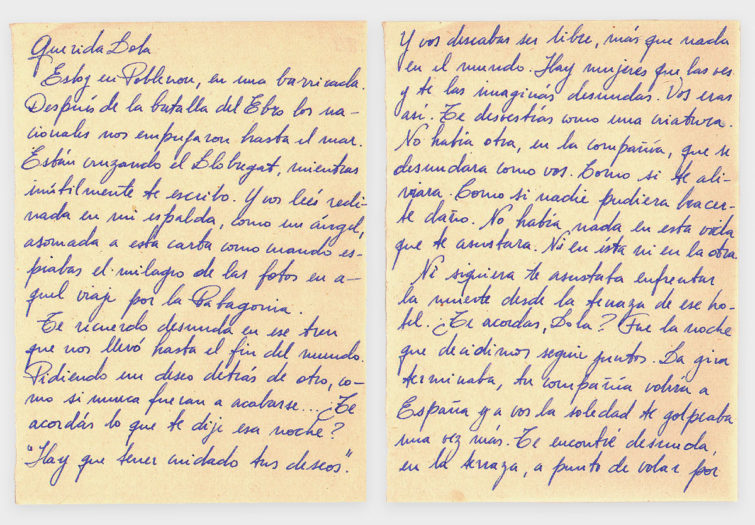 Querida Lola
Estoy en Poblenou, en una barricada.
Después de la batalla del Ebro los na-
cionales nos empujaron hasta el mar.
Están cruzando el Llobregat, mientras
inútilmente te escribo. Y vos leés recli-
nada en mi espalda, como un ángel,
asomada a esta carta como cuando es-
piabas el milagro de las fotos en a-
quel viaje por la Patagonia.
Te recuerdo desnuda en ese tren
que nos llevó hasta el fin del mundo.
Pidiendo un deseo detrás de otro, co-
mo si nunca fueran a acabarse... ¿Te
acordás lo que te dije esa noche?
"Hay que tener cuidado tus deseos".
Y vos deseabas ser libre, más que nada
en el mundo. Hay mujeres que las ves
y te las imaginás desnudas. Vos eras
así. Te desvestías como una criatura.
No había otra, en la compañía, que se
desnudara como vos. Como si te ali-
viara. Como si nadie pudiera hacer-
te daño. No había nada en esta vida
que te asustara. Ni en ésta ni en la otra.
Ni siquiera te asustaba enfrentar
la muerte desde la terraza de ese ho-
tel. ¿Te acordas, Lola? Fue la noche
que decidimos seguir juntos. La gira
terminaba, tu compañía volvía a
España y a vos la soledad te golpeaba
una vez más. Te encontré desnuda,
en la terraza, a punto de volar por